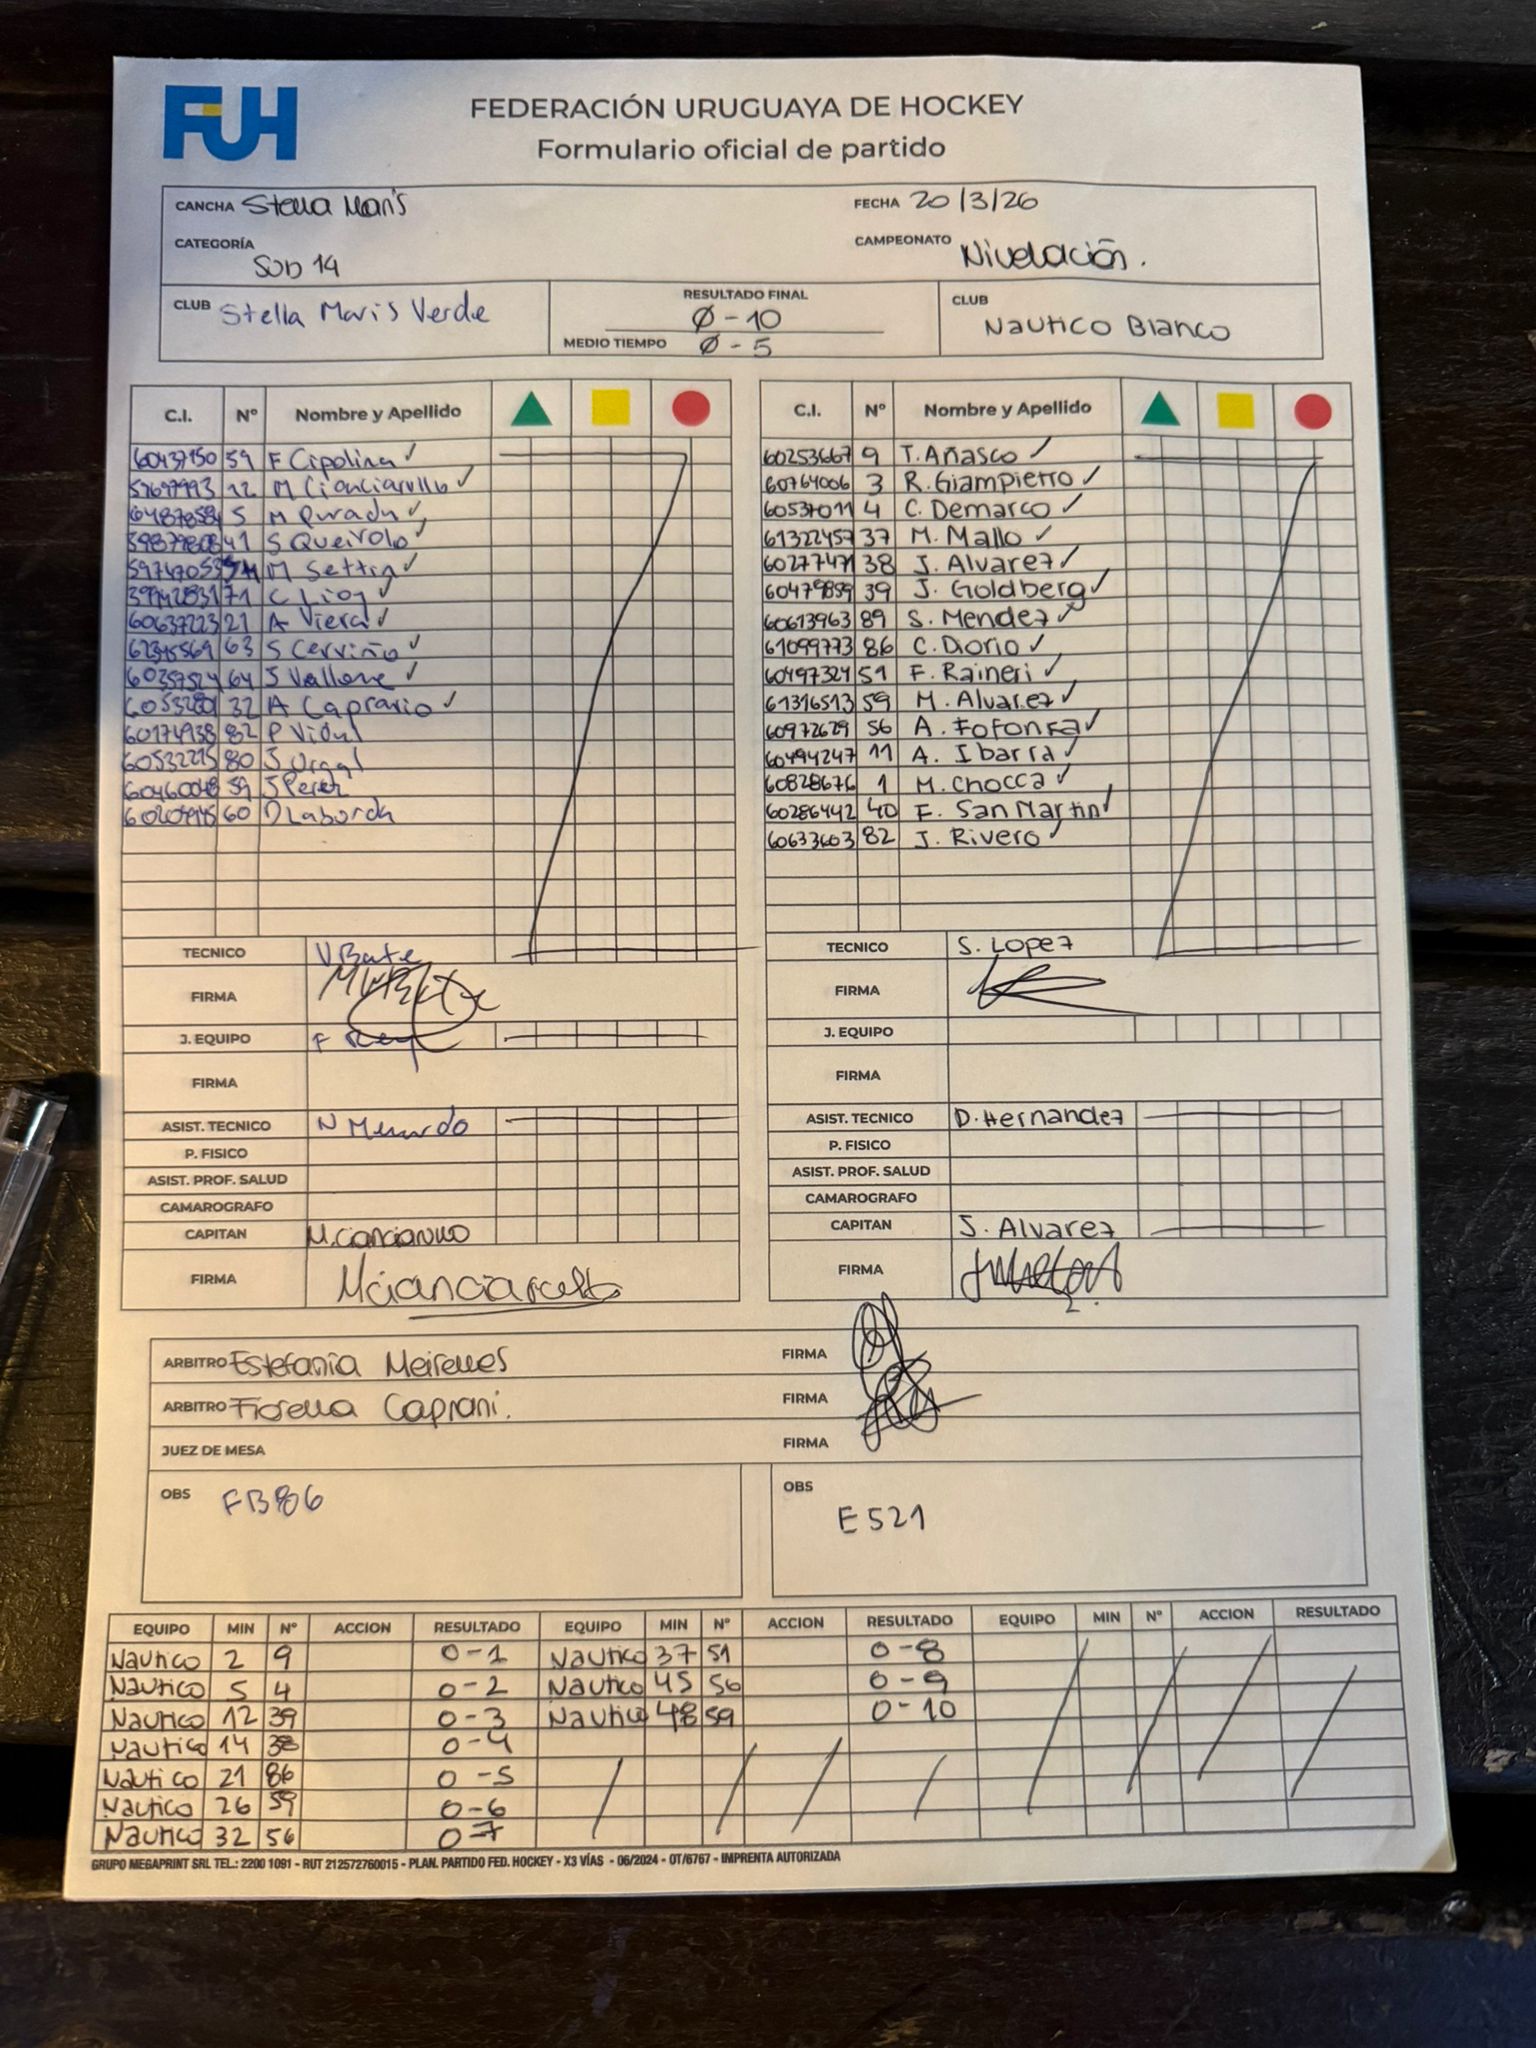 FUH
FEDERACIÓN URUGUAYA DE HOCKEY
Formulario oficial de partido
CANCHA Stella Maris FECHA 20/3/26
CATEGORÍA Sub 14 CAMPEONATO Nivelación.
CLUB Stella Maris Verde RESULTADO FINAL Ø-10 CLUB Nautico Blanco
MEDIO TIEMPO Ø-5
C.I. Nº Nombre y Apellido C.I. Nº Nombre y Apellido
60437150 59 F Cipolina ✓ 60253667 9 T. Añasco ✓
12 M Cianciarullo ✓ 60764006 3 R. Giampietro ✓
5 M ✓ 60537011 4 C. Demarco ✓
41 S Queirolo ✓ 61322457 37 M. Mallo ✓
M Settin ✓ 60277471 38 J. Alvarez ✓
71 C ✓ 60479859 39 J. Goldberg ✓
60637223 21 A Viera ✓ 60613963 89 S. Mendez ✓
63 S Cerviño ✓ 61099773 86 C. Diorio ✓
60357524 64 S Vallone ✓ 60497324 51 F. Raineri ✓
32 A Caprario ✓ 61316513 59 M. Alvarez ✓
60174938 82 P Vidal 60972629 56 A. Fofonka ✓
60532215 80 J 60494247 11 A. Ibarra ✓
60460048 59 J Perez 60828676 1 M. Chocca ✓
60 D Laborda 60286442 40 F. San Martin ✓
60633603 82 J. Rivero ✓
TECNICO V Bate TECNICO S. Lopez
FIRMA FIRMA
J. EQUIPO F J. EQUIPO
FIRMA FIRMA
ASIST. TECNICO N ASIST. TECNICO D. Hernandez
P. FISICO P. FISICO
ASIST. PROF. SALUD ASIST. PROF. SALUD
CAMAROGRAFO CAMAROGRAFO
CAPITAN M. Cianciarullo CAPITAN J. Alvarez
FIRMA Mcianciarullo FIRMA
ARBITRO Estefania Meirelles FIRMA
ARBITRO Fiorella Caprani. FIRMA
JUEZ DE MESA FIRMA
OBS FB86 OBS E521
EQUIPO MIN Nº ACCION RESULTADO EQUIPO MIN Nº ACCION RESULTADO EQUIPO MIN Nº ACCION RESULTADO
Nautico 2 9 0-1 Nautico 37 51 0-8
Nautico 5 4 0-2 Nautico 45 56 0-9
Nautico 12 39 0-3 Nautico 48 59 0-10
Nautico 14 38 0-4
Nautico 21 86 0-5
Nautico 26 59 0-6
Nautico 32 56 0-7
GRUPO MEGAPRINT SRL TEL.: 2200 1091 - RUT 212572760015 - PLAN. PARTIDO FED. HOCKEY - X3 VÍAS - 06/2024 - OT/6767 - IMPRENTA AUTORIZADA